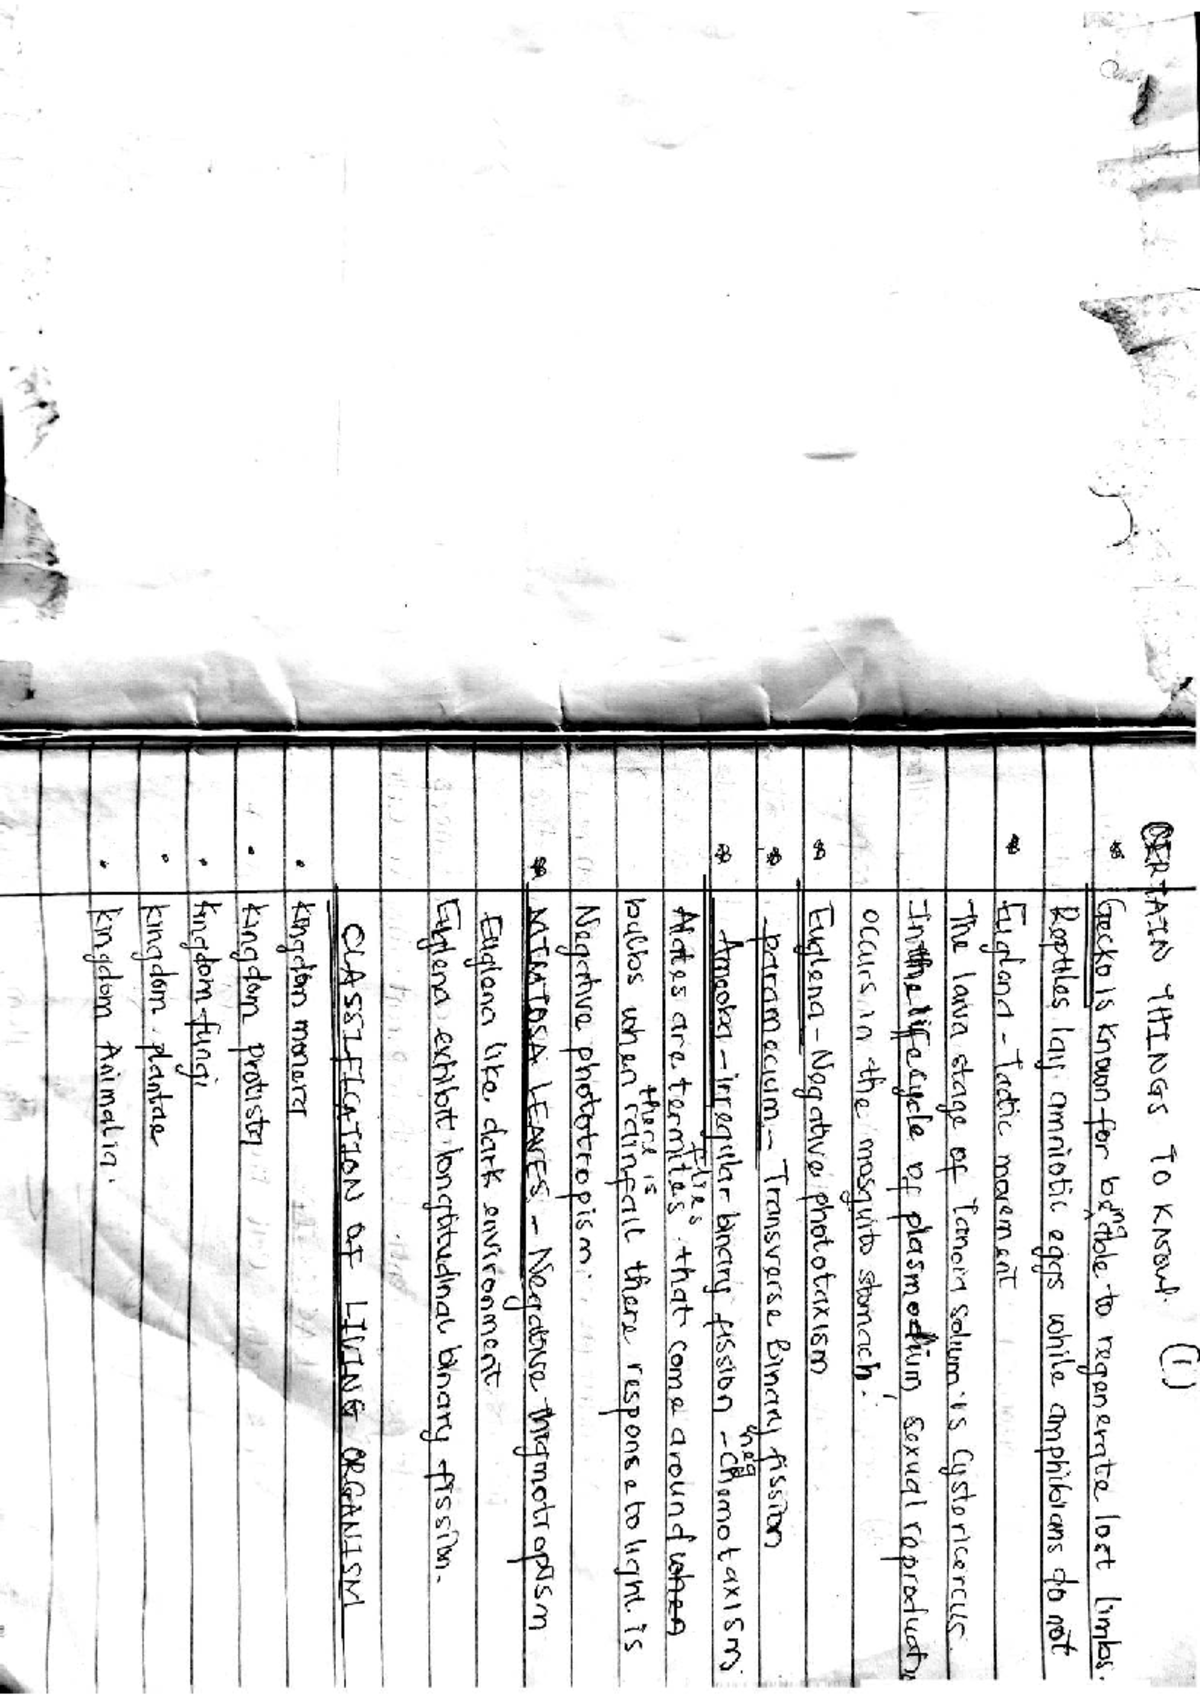 CERTAIN THINGS TO KNOW. (1)
* Gecko is known for being able to regenerate lost limbs.
Reptiles lay amniotic eggs while amphibians do not
* Euglena - Tactic movement
The lava stage of Tanoia solium is Cystericercus.
In the lifecycle of plasmodium sexual reproductn
occurs in the mosquito stomach.
* Euglena - Negative phototaxism
* paramecium - Transverse Binary fission
* Amoeba - irregular binary fission - neg chemotaxism
Alates are termites flies that come around when
bulbs when there is rainfall there response to light is
Negative phototropism.
* MIMOSA LEAVES - Negative thigmotropism
Euglena like dark environment
Euglena exhibit longtitudinal binary fission.
CLASSIFICATION OF LIVING ORGANISM
• Kingdom monera
• Kingdom protista
• Kingdom fungi
• Kingdom plantae
• Kingdom Animalia.